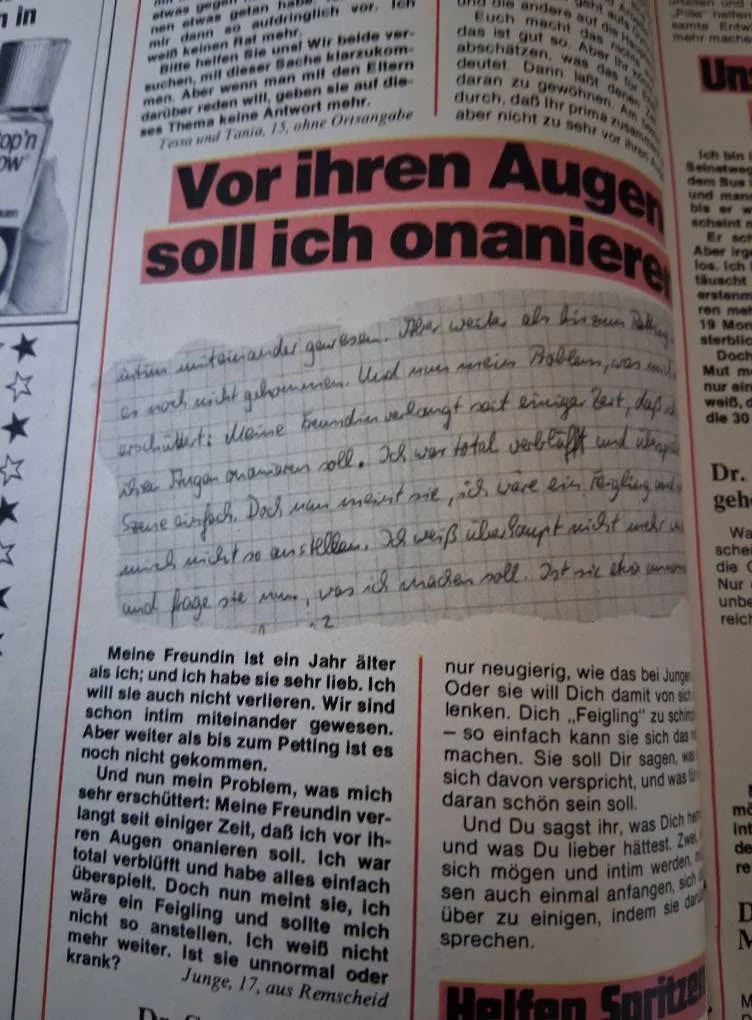 n in
op'n
ow
etwas gegen
nen etwas getan habe.
mir dann so aufdringlich vor. Ich
weiß keinen Rat mehr.
Bitte helfen Sie uns! Wir beide ver-
suchen, mit dieser Sache klarzukom-
men. Aber wenn man mit den Eltern
darüber reden will, geben sie auf die-
ses Thema keine Antwort mehr.
Tessa und Tania, 15, ohne Ortsangabe
und die andere auf die
Euch macht das nichts
das ist gut so. Aber Ihr
abschätzen, was das für
deutet. Dann laßt
daran zu gewöhnen. Am
durch, daß Ihr prima zusammen
aber nicht zu sehr vor ihren
Vor ihren Augen
soll ich onaniere
intim miteinander gewesen. Aber weiter als bis zum Petting
es noch nicht gekommen. Und nun mein Problem, was mich
erschüttert: Meine Freundin verlangt seit einiger Zeit, daß
ihren Augen onanieren soll. Ich war total verblüfft und
Szene einfach. Doch nun meint sie, ich wäre ein Feigling und
mich nicht so anstellen. Ich weiß überhaupt nicht mehr
und frage sie nun, was ich machen soll. Ist sie etwa
Meine Freundin ist ein Jahr älter
als ich; und ich habe sie sehr lieb. Ich
will sie auch nicht verlieren. Wir sind
schon intim miteinander gewesen.
Aber weiter als bis zum Petting ist es
noch nicht gekommen.
Und nun mein Problem, was mich
sehr erschüttert: Meine Freundin ver-
langt seit einiger Zeit, daß ich vor ih-
ren Augen onanieren soll. Ich war
total verblüfft und habe alles einfach
überspielt. Doch nun meint sie, ich
wäre ein Feigling und sollte mich
nicht so anstellen. Ich weiß nicht
mehr weiter. Ist sie unnormal oder
krank?
Junge, 17, aus Remscheid
nur neugierig, wie das bei Jungen
Oder sie will Dich damit von sich
lenken. Dich „Feigling" zu schim
– so einfach kann sie sich das
machen. Sie soll Dir sagen, was
sich davon verspricht, und was für
daran schön sein soll.
Und Du sagst ihr, was Dich
und was Du lieber hättest. Zwei,
sich mögen und intim werden,
sen auch einmal anfangen, sich
über zu einigen, indem sie
sprechen.
Helfen Spritzen
"Pille" helfen
samte Entw
mehr mache
Un
Ich bin
Seinetweg
dem Bus
und man
bis er w
scheint
Er sch
Aber irge
los. Ich
täuscht
erstenm
ren meh
19 Mon
sterblic
Doch
Mut m
nur ein
weiß, d
die 30
Dr.
geh
Wa
schei
die G
Nur
unbe
reich
mö
int
de
re
D
M